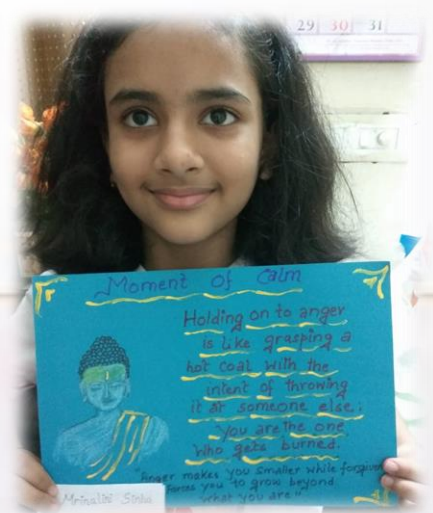 29 30 31
Moment of Calm
Holding on to anger
is like grasping a
hot coal with the
intent of throwing
it at someone else;
you are the one
who gets burned.
"Anger makes you smaller while forgive
forces you to grow beyond
what you are"
Mrinalini Sinha